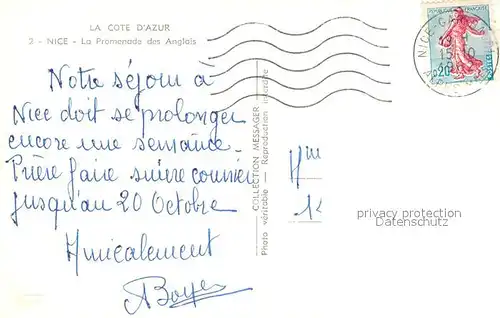 LA COTE D'AZUR
2 - NICE - La Promenade des Anglais
Notre séjour à
Nice doit se prolonger
encore une semaine.
Prière faire suivre courrier
jusqu'au 20 Octobre
Amicalement
ABoyer
COLLECTION MESSAGER
Photo véritable - Reproduction interdite
REPUBLIQUE FRANÇAISE
0,20
NICE
15-10
privacy protection
Datenschutz